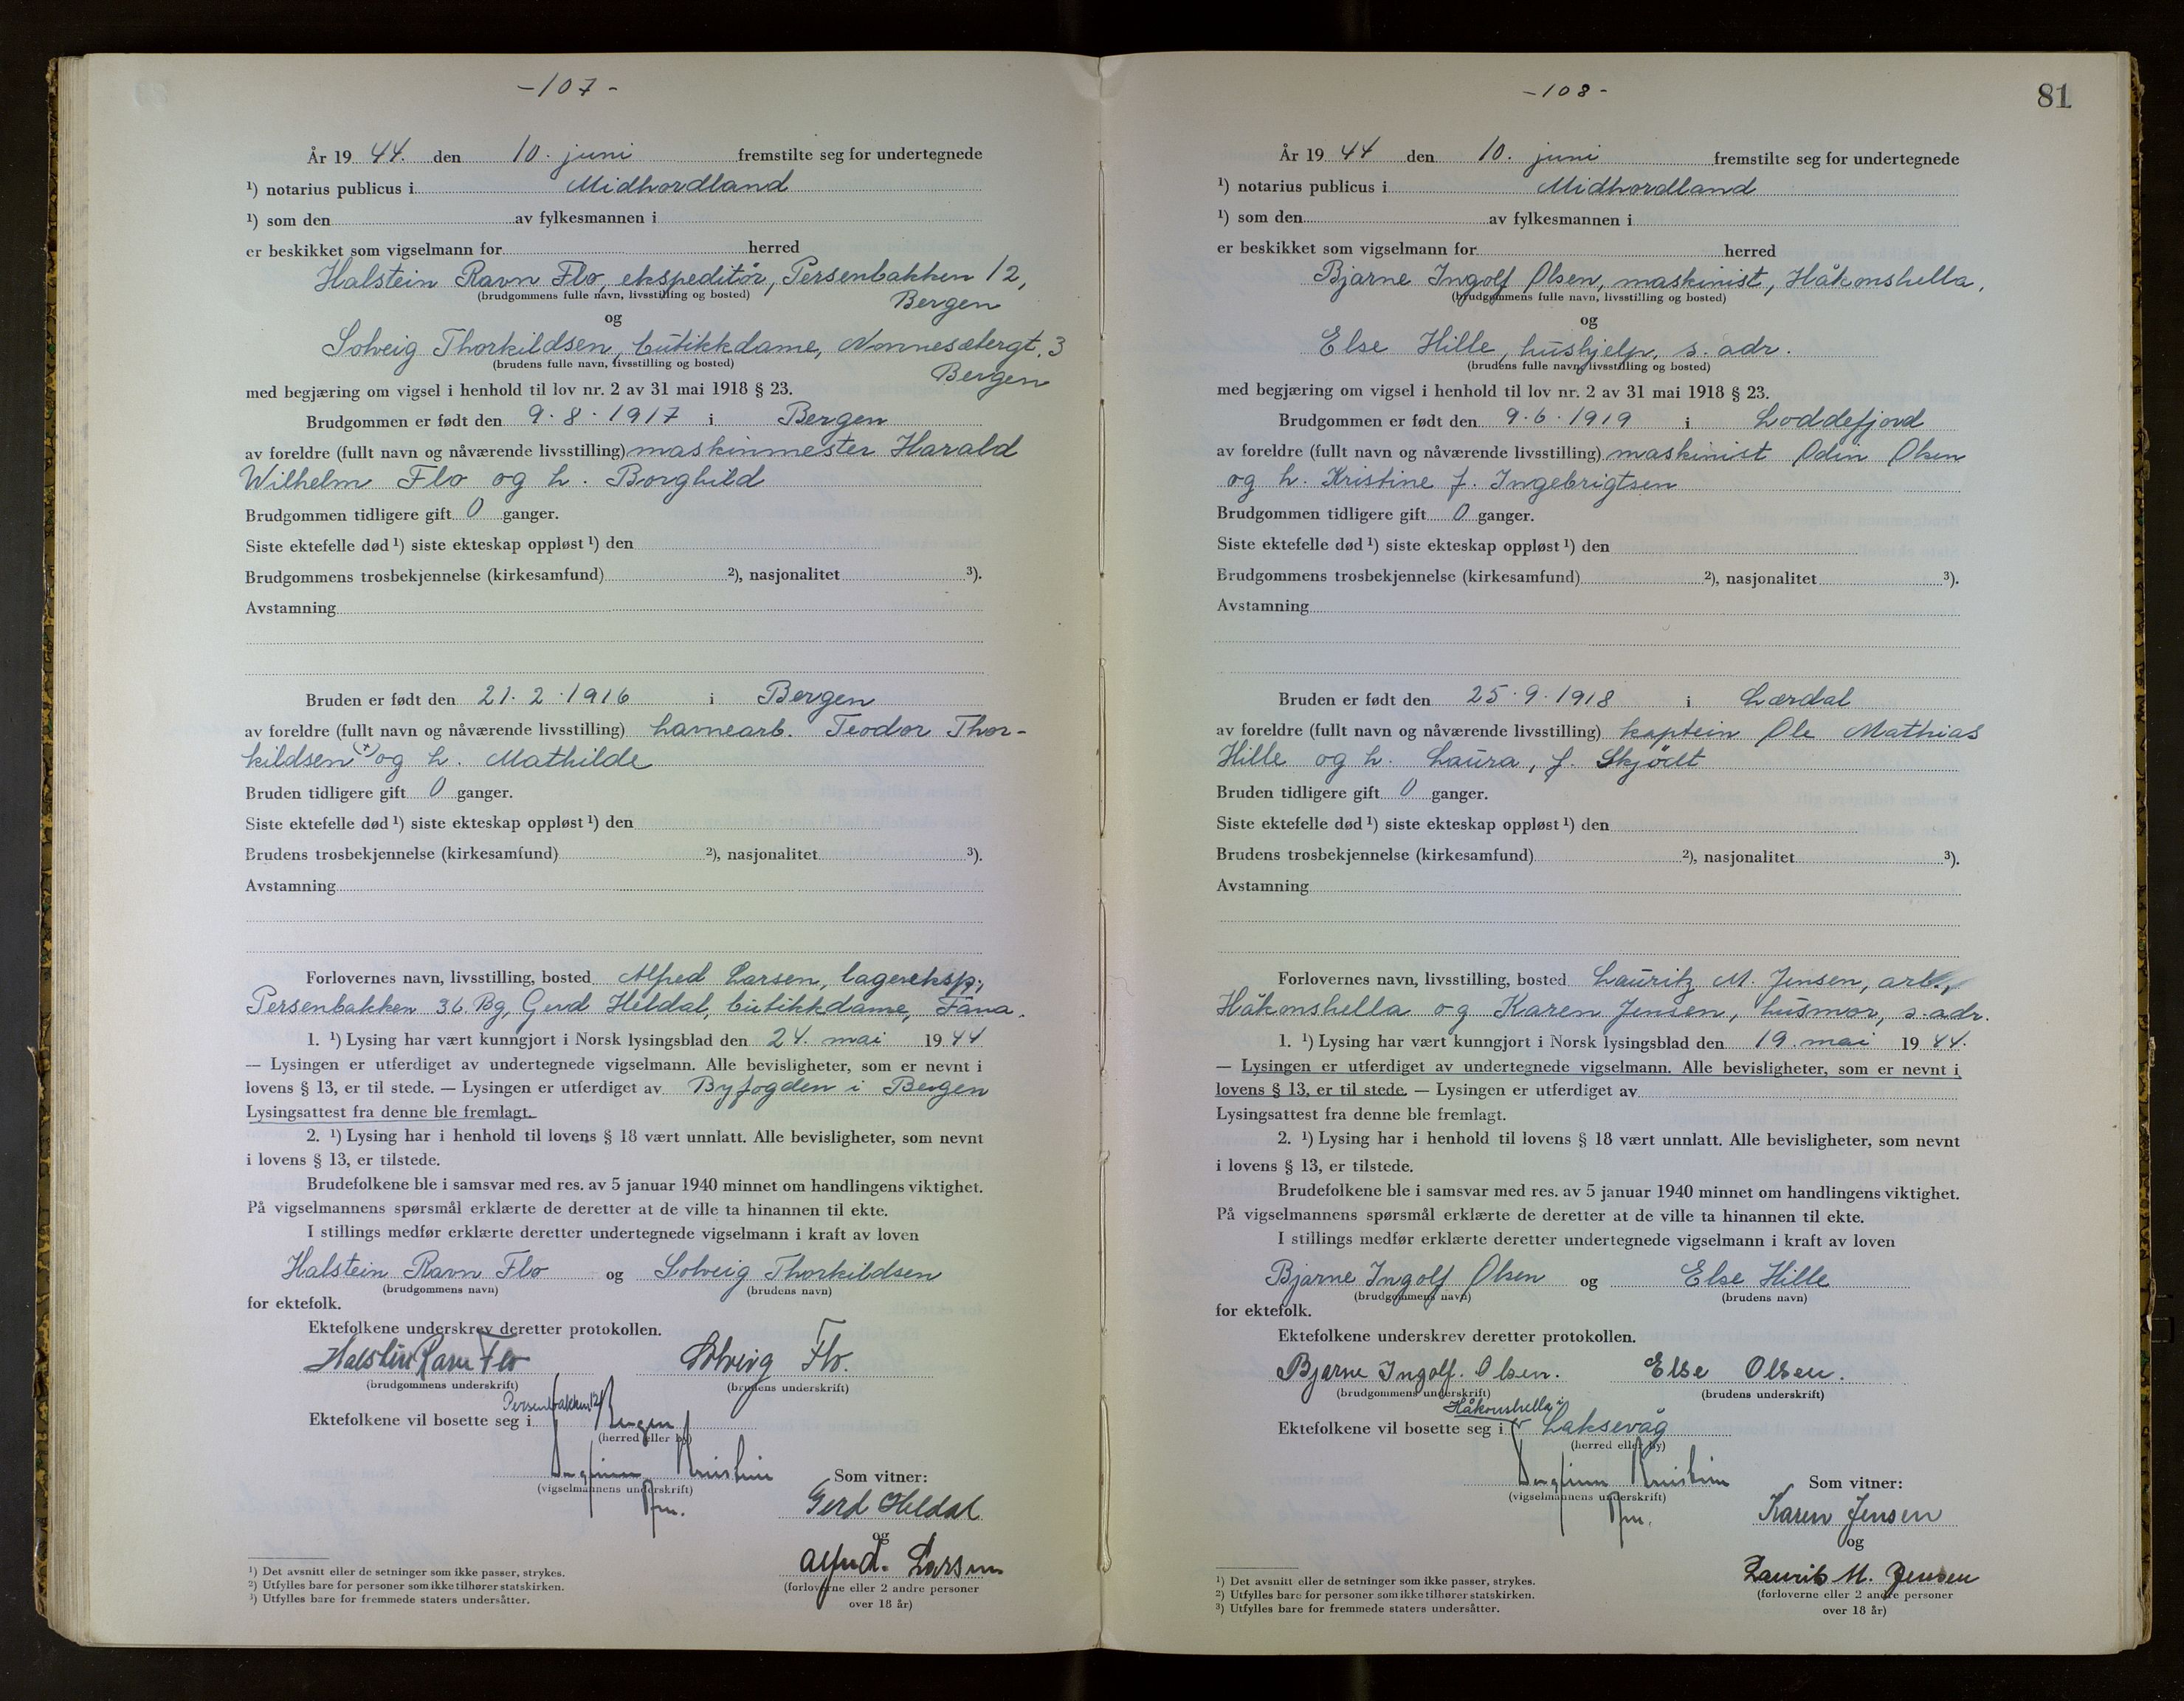 -107-
År 19 44. den 10. juni fremstilte seg for undertegnede
¹) notarius publicus i Midhordland
¹) som den av fylkesmannen i
er beskikket som vigselmann for herred
Halstein Ravn Flo, ekspeditør, Persenbakken 12,
(brudgommens fulle navn, livsstilling og bosted)
Bergen
og
Solveig Thorkildsen, butikkdame, Nonnesætergt. 3
(brudens fulle navn, livsstilling og bosted)
Bergen
med begjæring om vigsel i henhold til lov nr. 2 av 31 mai 1918 § 23.
Brudgommen er født den 9.8.1917 i Bergen
av foreldre (fullt navn og nåværende livsstilling) maskinmester Harald
Wilhelm Flo og h. Borghild
Brudgommen tidligere gift 0 ganger.
Siste ektefelle død ¹) siste ekteskap oppløst ¹) den
Brudgommens trosbekjennelse (kirkesamfund) ²), nasjonalitet ³).
Avstamning
Bruden er født den 21.2.1916 i Bergen
av foreldre (fullt navn og nåværende livsstilling) havnearb. Teodor Thor-
kildsen (+) og h. Mathilde
Bruden tidligere gift 0 ganger.
Siste ektefelle død ¹) siste ekteskap oppløst ¹) den
Brudens trosbekjennelse (kirkesamfund) ²), nasjonalitet ³).
Avstamning
Forlovernes navn, livsstilling, bosted Alfred Larsen, lagereksp.,
Persenbakken 36 Bg, Gerd Heldal, butikkdame, Fana.
1. ¹) Lysing har vært kunngjort i Norsk lysingsblad den 24. mai 19 44
— Lysingen er utferdiget av undertegnede vigselmann. Alle bevisligheter, som er nevnt i
lovens § 13, er til stede. — Lysingen er utferdiget av Byfogden i Bergen
Lysingsattest fra denne ble fremlagt.
2. ¹) Lysing har i henhold til lovens § 18 vært unnlatt. Alle bevisligheter, som nevnt
i lovens § 13, er tilstede.
Brudefolkene ble i samsvar med res. av 5 januar 1940 minnet om handlingens viktighet.
På vigselmannens spørsmål erklærte de deretter at de ville ta hinannen til ekte.
I stillings medfør erklærte deretter undertegnede vigselmann i kraft av loven
Halstein Ravn Flo og Solveig Thorkildsen
(brudgommens navn) (brudens navn)
for ektefolk.
Ektefolkene underskrev deretter protokollen.
Halstein Ravn Flo Solveig Flo.
(brudgommens underskrift) (brudens underskrift)
Persenbakken 12
Ektefolkene vil bosette seg i Bergen
(herred eller by)
(vigselmannens underskrift)
Som vitner:
Gerd Heldal
og
Alfred. Larsen
(forloverne eller 2 andre personer
over 18 år)
¹) Det avsnitt eller de setninger som ikke passer, strykes.
²) Utfylles bare for personer som ikke tilhører statskirken.
³) Utfylles bare for fremmede staters undersåtter.
-108-
81
År 19 44 den 10. juni fremstilte seg for undertegnede
¹) notarius publicus i Midhordland
¹) som den av fylkesmannen i
er beskikket som vigselmann for herred
Bjarne Ingolf Olsen, maskinist, Håkonshella,
(brudgommens fulle navn, livsstilling og bosted)
og
Else Hille, hushjelp, s. adr.
(brudens fulle navn, livsstilling og bosted)
med begjæring om vigsel i henhold til lov nr. 2 av 31 mai 1918 § 23.
Brudgommen er født den 9.6.1919 i Loddefjord
av foreldre (fullt navn og nåværende livsstilling) maskinist Odin Olsen
og h. Kristine f. Ingebrigtsen
Brudgommen tidligere gift 0 ganger.
Siste ektefelle død ¹) siste ekteskap oppløst ¹) den
Brudgommens trosbekjennelse (kirkesamfund) ²), nasjonalitet ³).
Avstamning
Bruden er født den 25.9.1918 i Lærdal
av foreldre (fullt navn og nåværende livsstilling) kaptein Ole Mathias
Hille og h. Laura, f. Skjödt
Bruden tidligere gift 0 ganger.
Siste ektefelle død ¹) siste ekteskap oppløst ¹) den
Brudens trosbekjennelse (kirkesamfund) ²), nasjonalitet ³).
Avstamning
Forlovernes navn, livsstilling, bosted Lauritz M. Jensen, arb.,
Håkonshella og Karen Jensen, husmor, s. adr.
1. ¹) Lysing har vært kunngjort i Norsk lysingsblad den 19. mai 19 44.
— Lysingen er utferdiget av undertegnede vigselmann. Alle bevisligheter, som er nevnt i
lovens § 13, er til stede. — Lysingen er utferdiget av
Lysingsattest fra denne ble fremlagt.
2. ¹) Lysing har i henhold til lovens § 18 vært unnlatt. Alle bevisligheter, som nevnt
i lovens § 13, er tilstede.
Brudefolkene ble i samsvar med res. av 5 januar 1940 minnet om handlingens viktighet.
På vigselmannens spørsmål erklærte de deretter at de ville ta hinannen til ekte.
I stillings medfør erklærte deretter undertegnede vigselmann i kraft av loven
Bjarne Ingolf Olsen og Else Hille
(brudgommens navn) (brudens navn)
for ektefolk.
Ektefolkene underskrev deretter protokollen.
Bjarne Ingolf. Olsen. Else Olsen.
(brudgommens underskrift) (brudens underskrift)
Håkonshella i
Ektefolkene vil bosette seg i Laksevåg
(herred eller by)
(vigselmannens underskrift)
Som vitner:
Karen Jensen
og
Laurits M. Jensen
(forloverne eller 2 andre personer
over 18 år)
¹) Det avsnitt eller de setninger som ikke passer, strykes.
²) Utfylles bare for personer som ikke tilhører statskirken.
³) Utfylles bare for fremmede staters undersåtter.